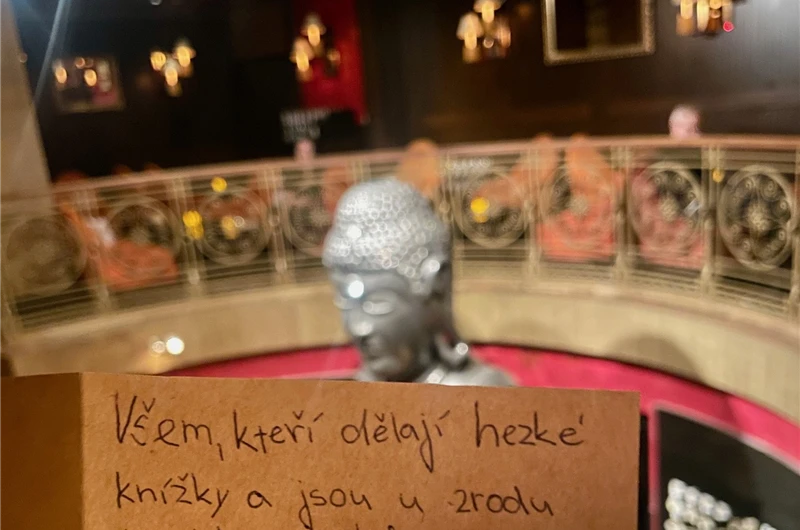 Všem, kteří dělají hezké
knížky a jsou u zrodu